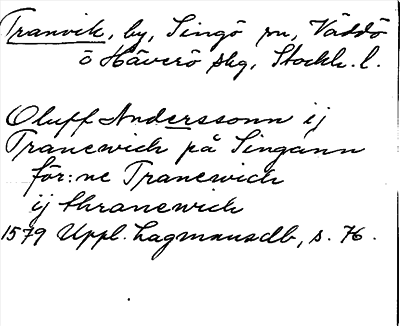 Tranvik, by, Singö sn, Väddö
o Häverö skg, Stockh. l.
Oluff Anderssonn ij
Tranewich på Singann
för:ne Tranewich
ij thranewich
1579 Uppl. Lagmansdb, s. 76.